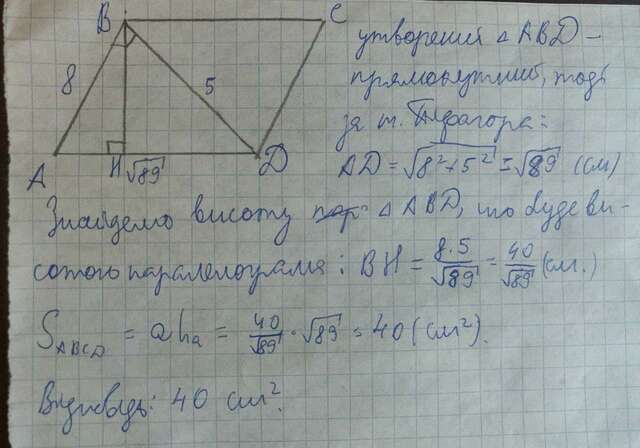 B C
8 5
A H √89 D
утворений △ABD –
прямокутний, тоді
за т. Піфагора:
AD = √8²+5² = √89 (см)
Знайдемо висоту △ABD, що буде ви-
сотою паралелограма: BH = 8·5/√89 = 40/√89 (см.)
S_ABCD = a h_a = 40/√89 · √89 = 40 (см²).
Відповідь: 40 см².